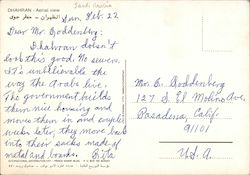 Saudi Arabia
DHAHRAN - Aerial view
الظهران - منظر جوى
Sun. Feb. 22
Dear Mr. Boddenberg:
Dhahran doesn't
look this good. No sewers.
It's unbelievable the
way the Arabs live.
The government builds
them nice housing and
moves them in and
weeks later, they move back
into their sacks made of
metal and boards. Rita
Mr. E. Boddenberg
127 S. El Molino Ave.
Pasadena, Calif.
91101
U.S.A.